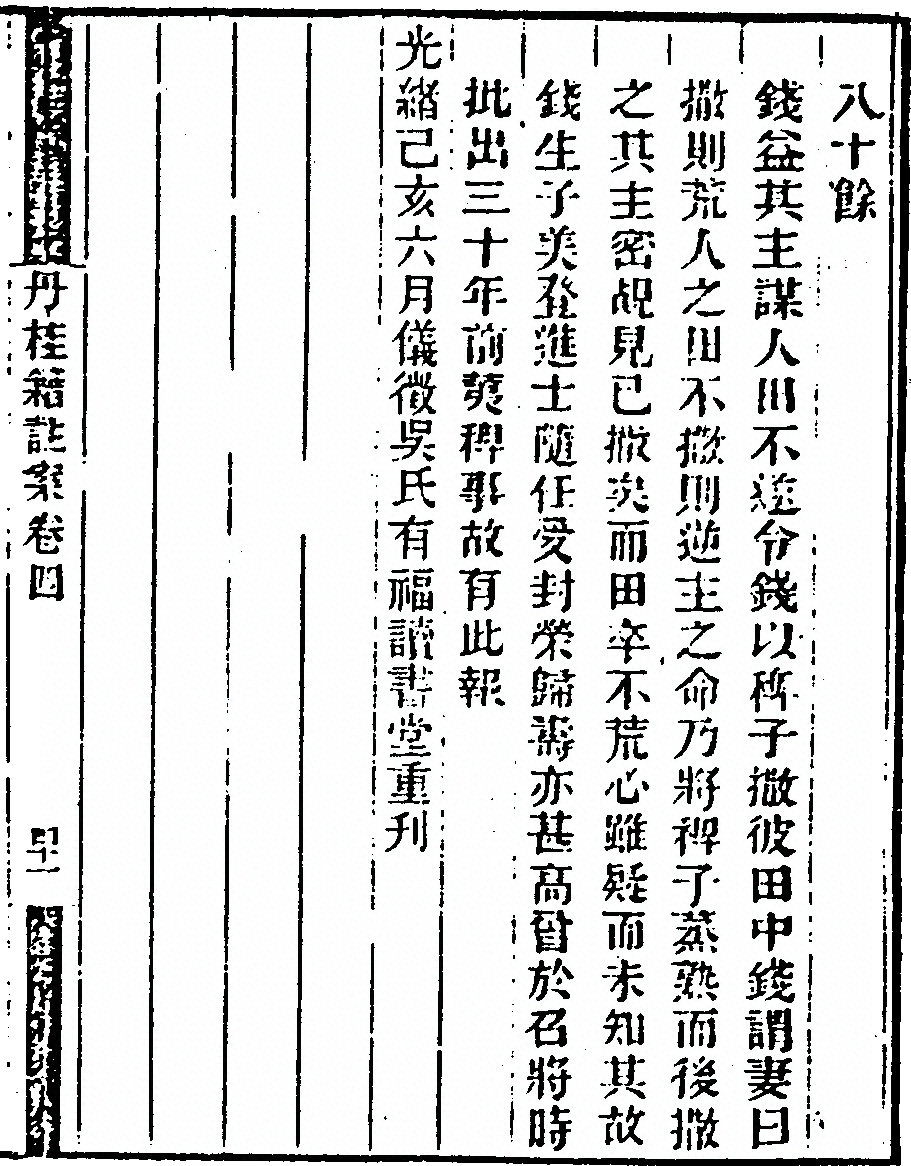 八十餘
錢益其主謀人田不遂令錢以稗子撒彼田中錢謂妻曰
撒則荒人之田不撒則逆主之命乃將稗子蒸熟而後撒
之其主密覘見已撒矣而田卒不荒心雖疑而未知其故
錢生子美登進士隨任受封榮歸壽亦甚高曾於召將時
批出三十年前煑稗事故有此報
光緒己亥六月儀徵吳氏有福讀書堂重刊
丹桂籍註案卷四
四十一